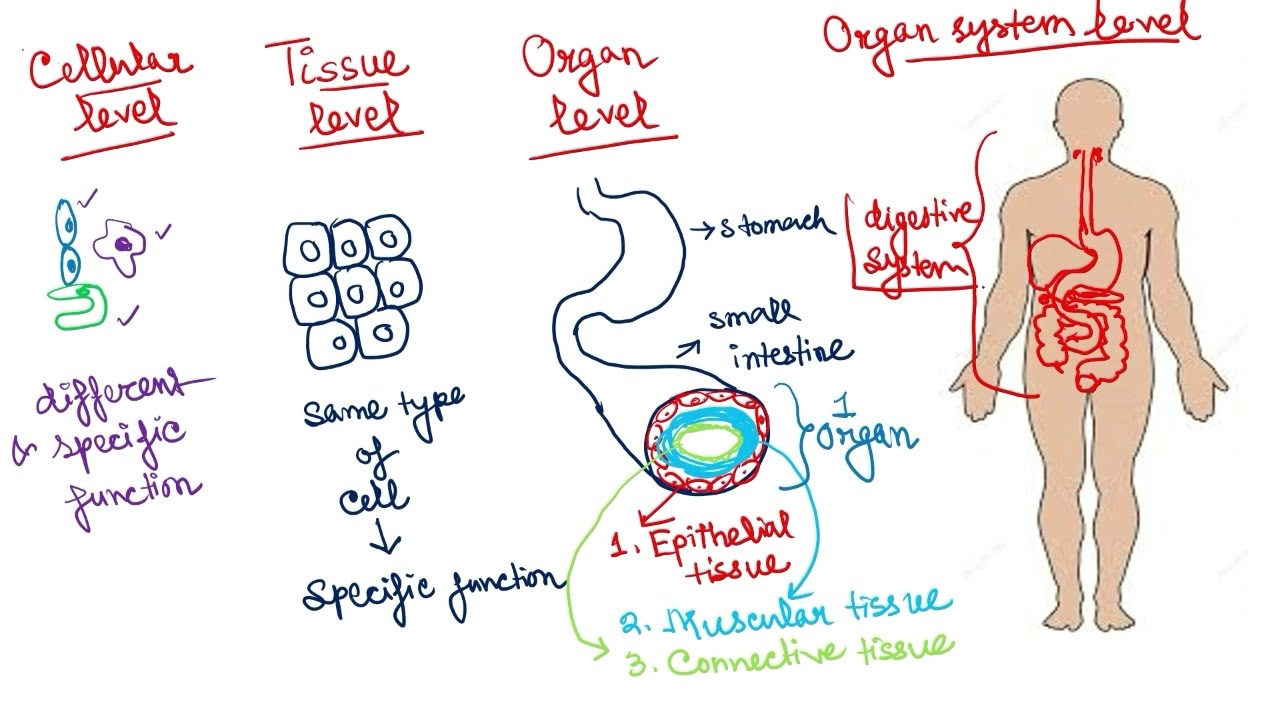 Cellular
level
different
& specific
function
Tissue
level
Same type
of
cell
↓
Specific function
Organ
level
→ stomach
small
intestine
1
Organ
1. Epithelial
tissue
2. Muscular tissue
3. Connective tissue
Organ system level
digestive
system